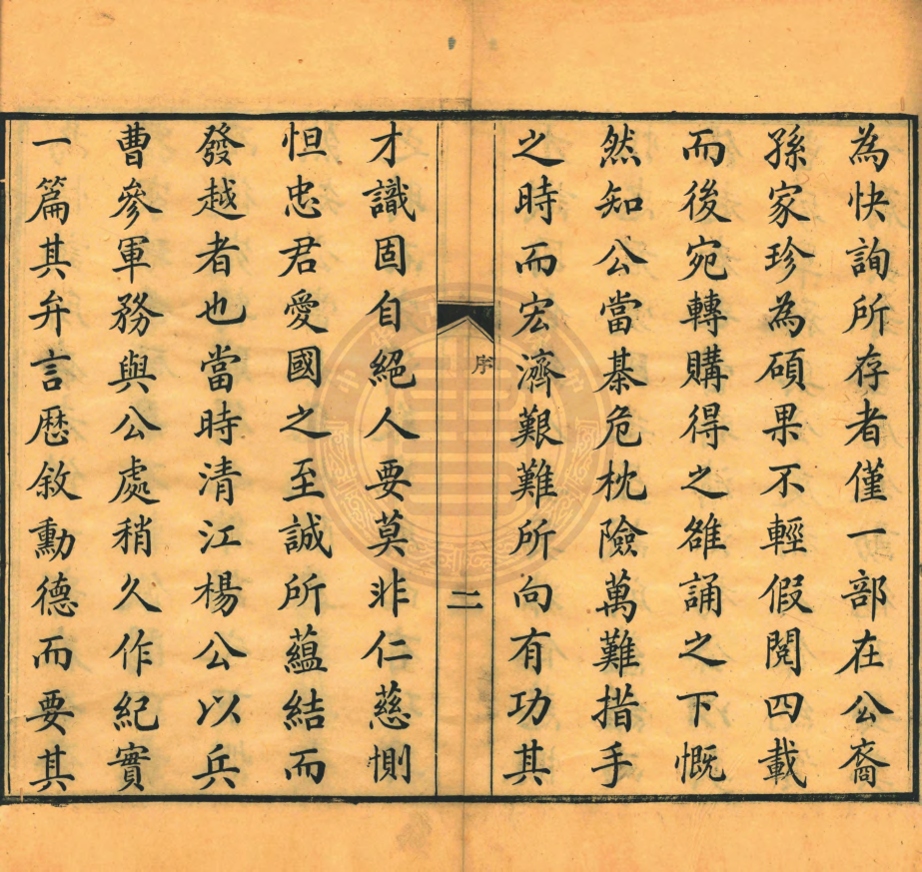 為快詢所存者僅一部在公裔
孫家珍為碩果不輕假閱四載
而後宛轉購得之雒誦之下慨
然知公當棊危枕險萬難措手
之時而宏濟艱難所向有功其
序
二
才識固自絕人要莫非仁慈惻
怛忠君愛國之至誠所蘊結而
發越者也當時清江楊公以兵
曹參軍務與公處稍久作紀實
一篇其弁言歷敘勳德而要其